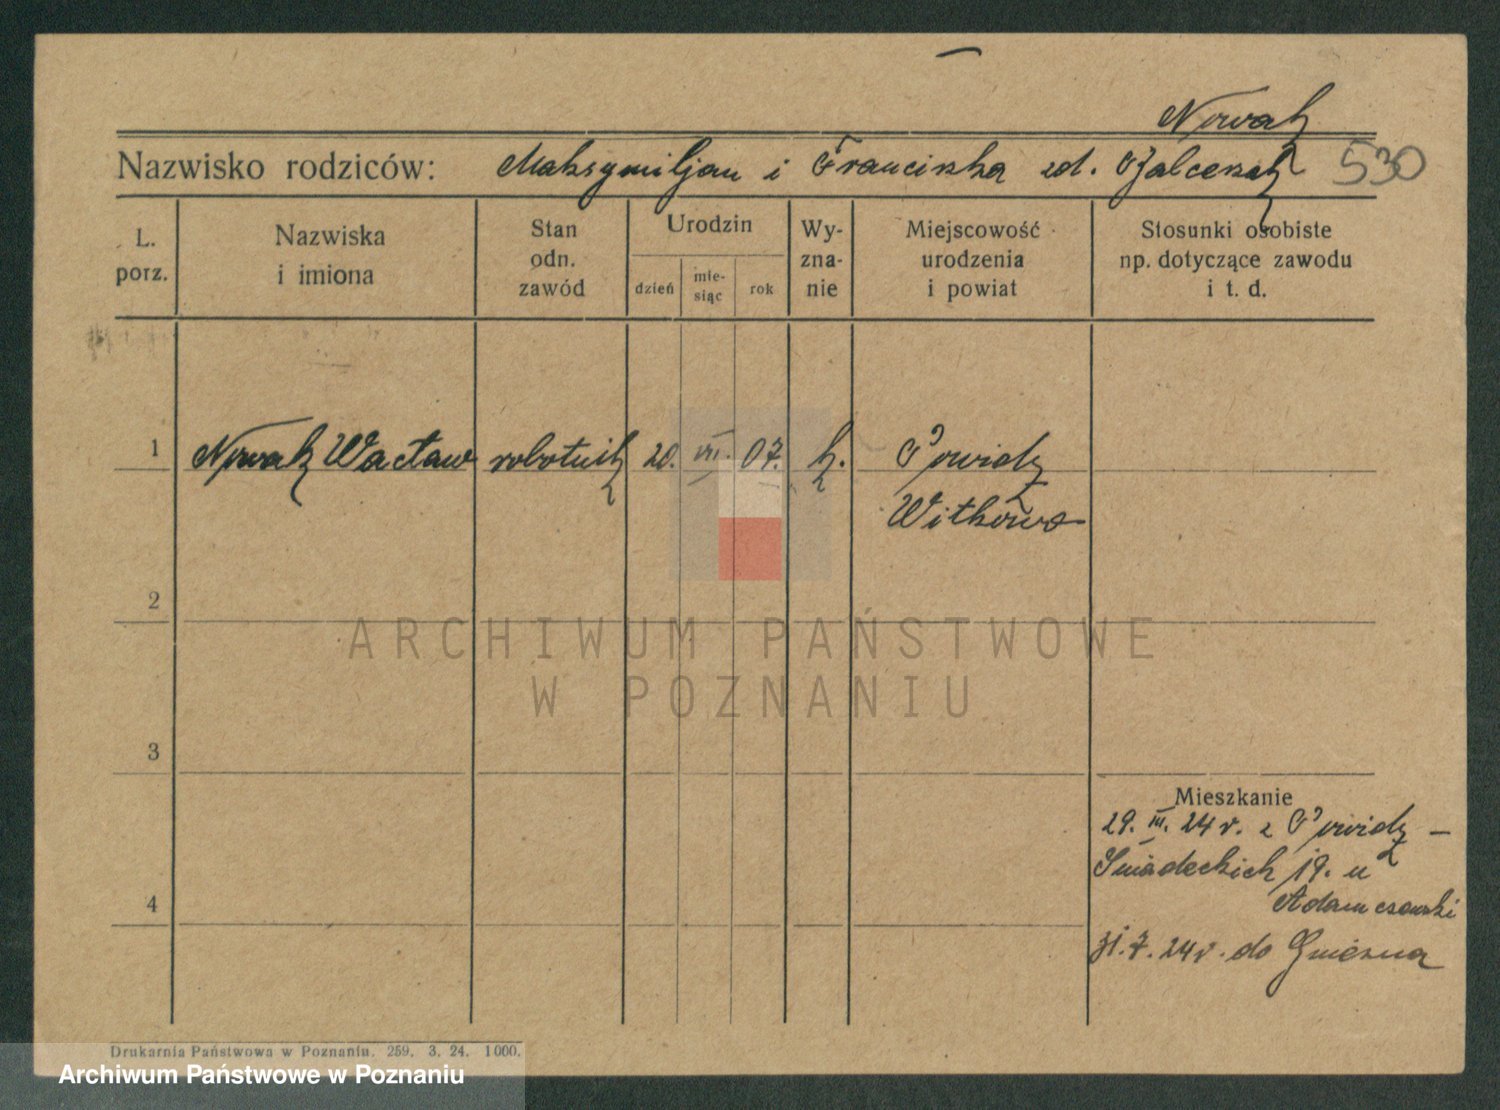 Nowak
Nazwisko rodziców: Maksymiljan i Franciszka zd. 530
L. porz. Nazwiska i imiona Stan odn. zawód Urodzin dzień mie-siąc rok Wy-zna-nie Miejscowość urodzenia i powiat Stosunki osobiste np. dotyczące zawodu i t. d.
1 Nowak Wacław robotnik 20. VII. 07. k. Powidz
Witkowo
2
ARCHIWUM PAŃSTWOWE
W POZNANIU
3
Mieszkanie
29. III. 24 r. z Powidz –
Śniadeckich 19. u
4
31. 7. 24 r. do Gniezna
Drukarnia Państwowa w Poznaniu. 259. 3. 24. 1000.
Archiwum Państwowe w Poznaniu